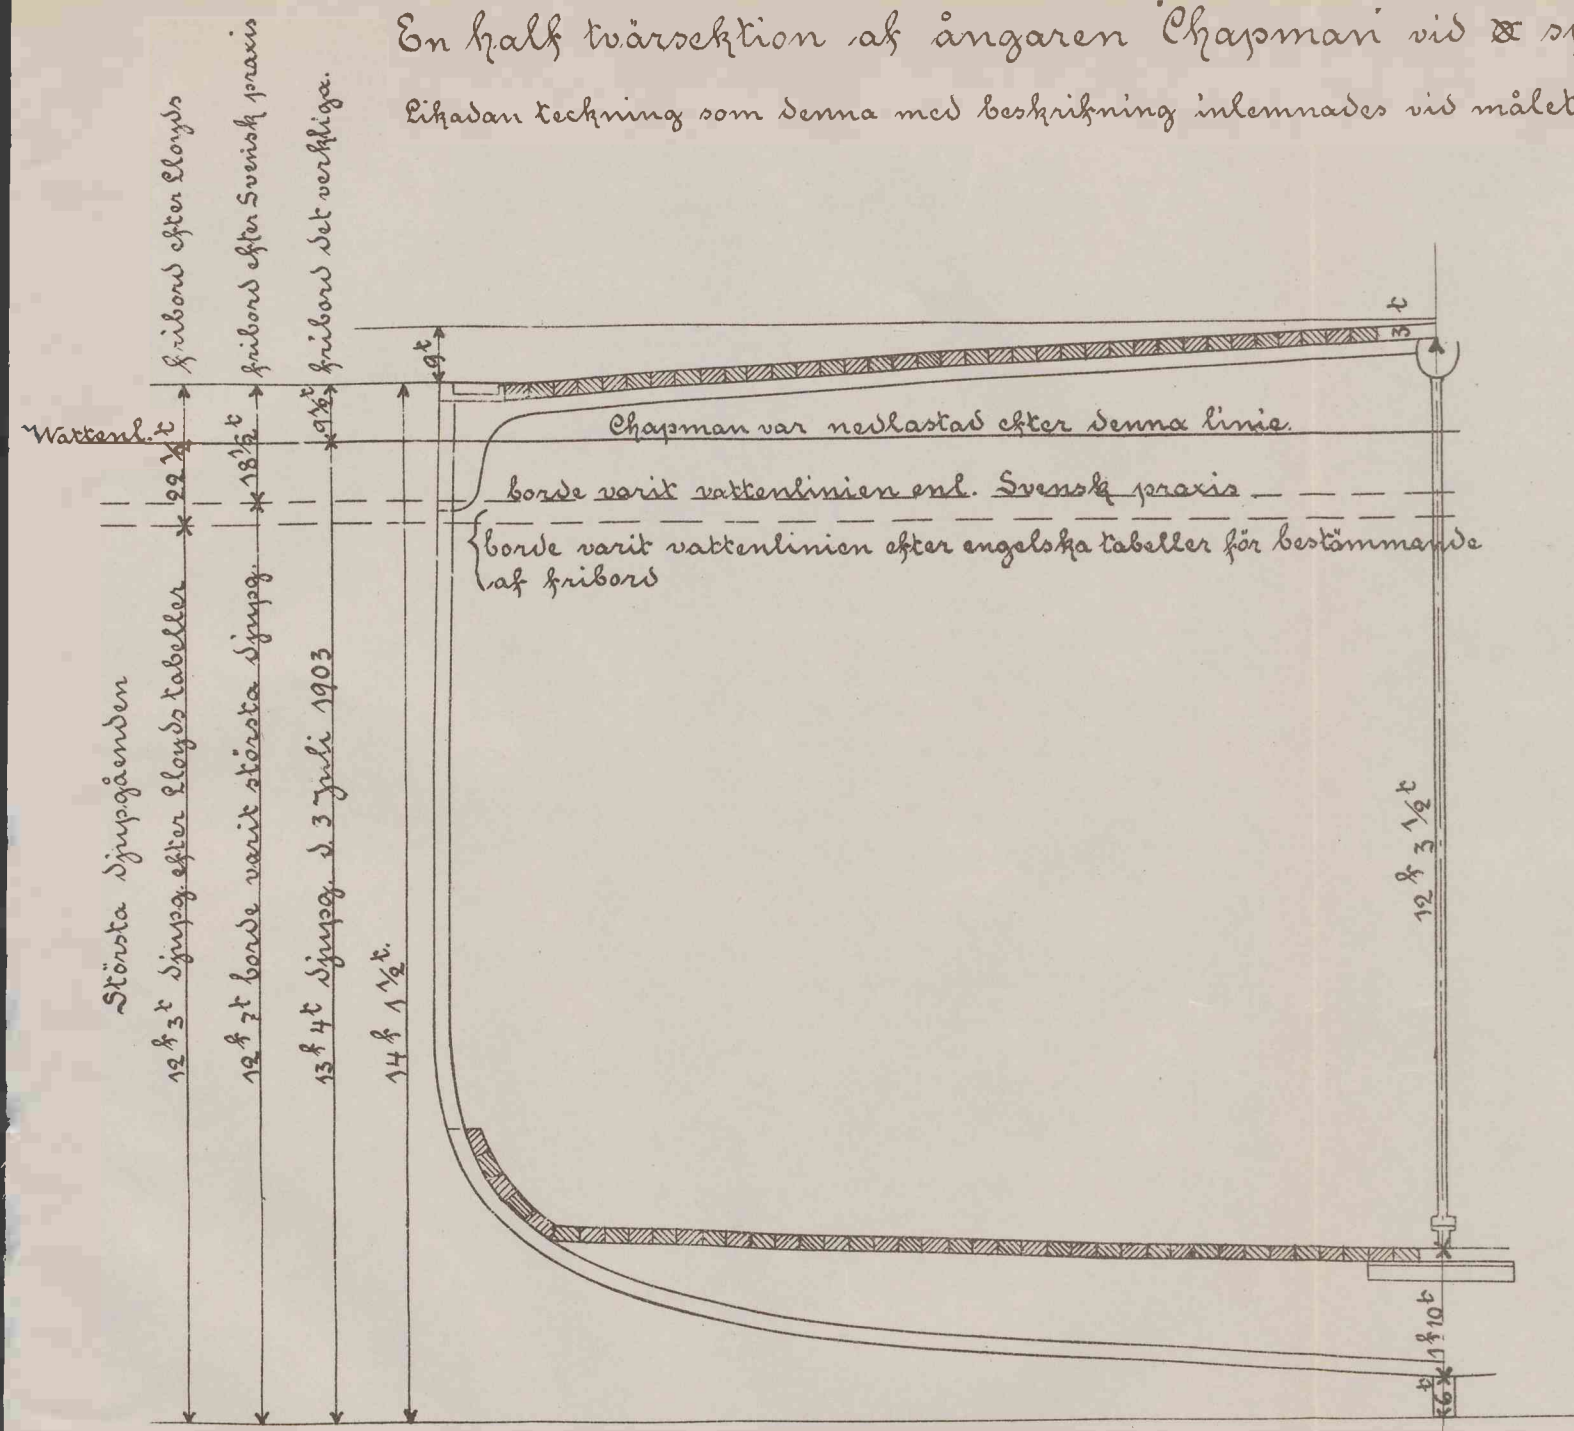 En half tvärsektion af ångaren "Chapman" vid
Likadan teckning som denna med beskrifning inlemnades vid målet
fribord efter Lloyds
fribord efter Svensk praxis
fribord det verkliga.
9 t
3 t
Wattenl.
22 ½ t
18 ½ t
9 ½ t
Chapman var nedlastad efter denna linie.
borde varit vattenlinien enl. Svensk praxis
borde varit vattenlinien efter engelska tabeller för bestämmande
af fribord
Största djupgåenden
12 f 3 t djupg. efter Lloyds tabeller
12 f 7 t borde varit största djupg.
13 f 4 t djupg. d. 3 Juli 1903
14 f 1 ½ t.
12 f 3 ½ t
1 f 10 t
6 t